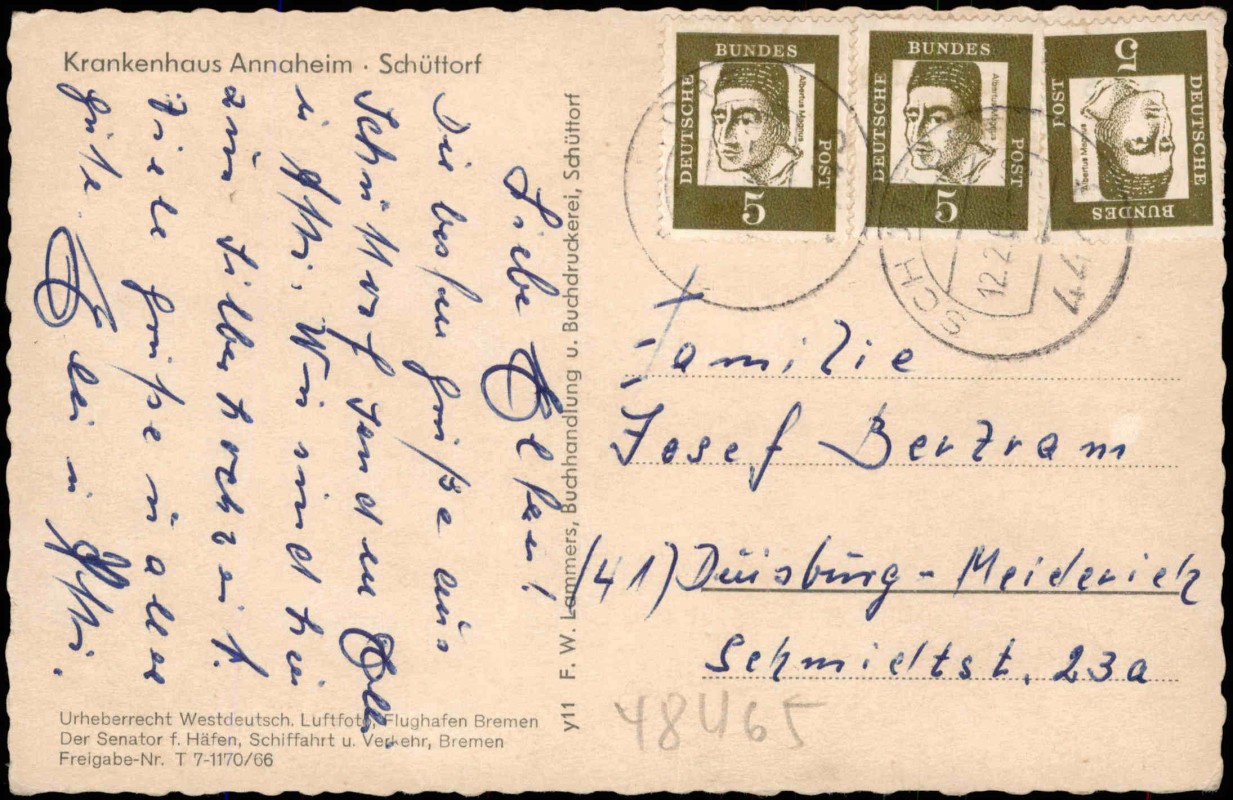 Krankenhaus Annaheim · Schüttorf
Liebe Eltern!
Die besten Grüße aus
Schüttorf senden Elli
u
Wir sind hier
zur Silberhochzeit.
Viele Grüße u alles
Gute. Elli u
Urheberrecht Westdeutsch. Luftfoto, Flughafen Bremen
Der Senator f. Häfen, Schiffahrt u. Verkehr, Bremen
Freigabe-Nr. T 7-1170/66
y11 F. W. Lammers, Buchhandlung u. Buchdruckerei, Schüttorf
DEUTSCHE BUNDES POST
Albertus Magnus
5
DEUTSCHE BUNDES POST
Albertus Magnus
5
DEUTSCHE BUNDES POST
Albertus Magnus
5
SCH
12.2.6
444
Familie
Josef Bertram
(41) Duisburg - Meiderich
Schmidtst. 23a
48465